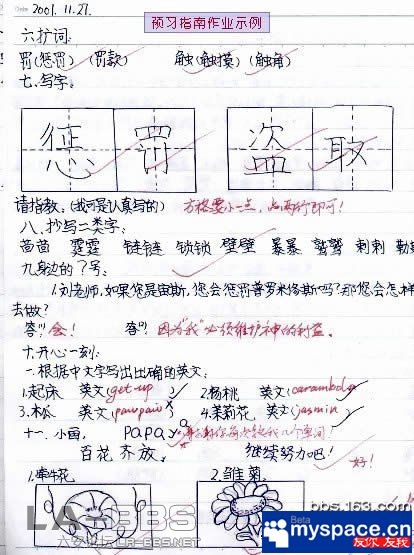 Date 2001.11.27.
预习指南作业示例
六扩词:
罚(惩罚)(罚款) 触(触摸)(触角)
七.写字:
惩罚 盗取
请指教:(我可是认真写的) 方格要小一点,占两行即可!
八、抄写二类字:
苗苗 霆霆 链链 锁锁 壁壁 暴暴 鹫鹫 刺刺 勒
九身边的?号:
1.刘老师,如果您是宙斯,您会惩罚普罗米修斯吗?那您会怎样
去做?
答:会! 答:因为"我"必须维护神的利益。
十.开心一刻:
一.根据中文字写出正确的英文:
1.起床 英文(get up) 2.杨桃 英文(carambola)
3.木瓜 英文(pawpaw) 4.茉莉花 英文(jasmin)
papaya
十一.小画,
百花齐放。 继续努力吧! 好!
1.牵牛花 2.雏菊
LA-BBS
bbs.163.com
Beta
myspace.cn
友你,友我